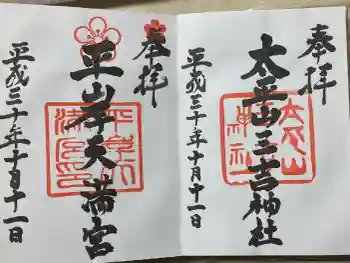 奉拝
太平山三吉神社
平成三十年十月十一日
奉拝
平岸天満宮
平成三十年十月十一日